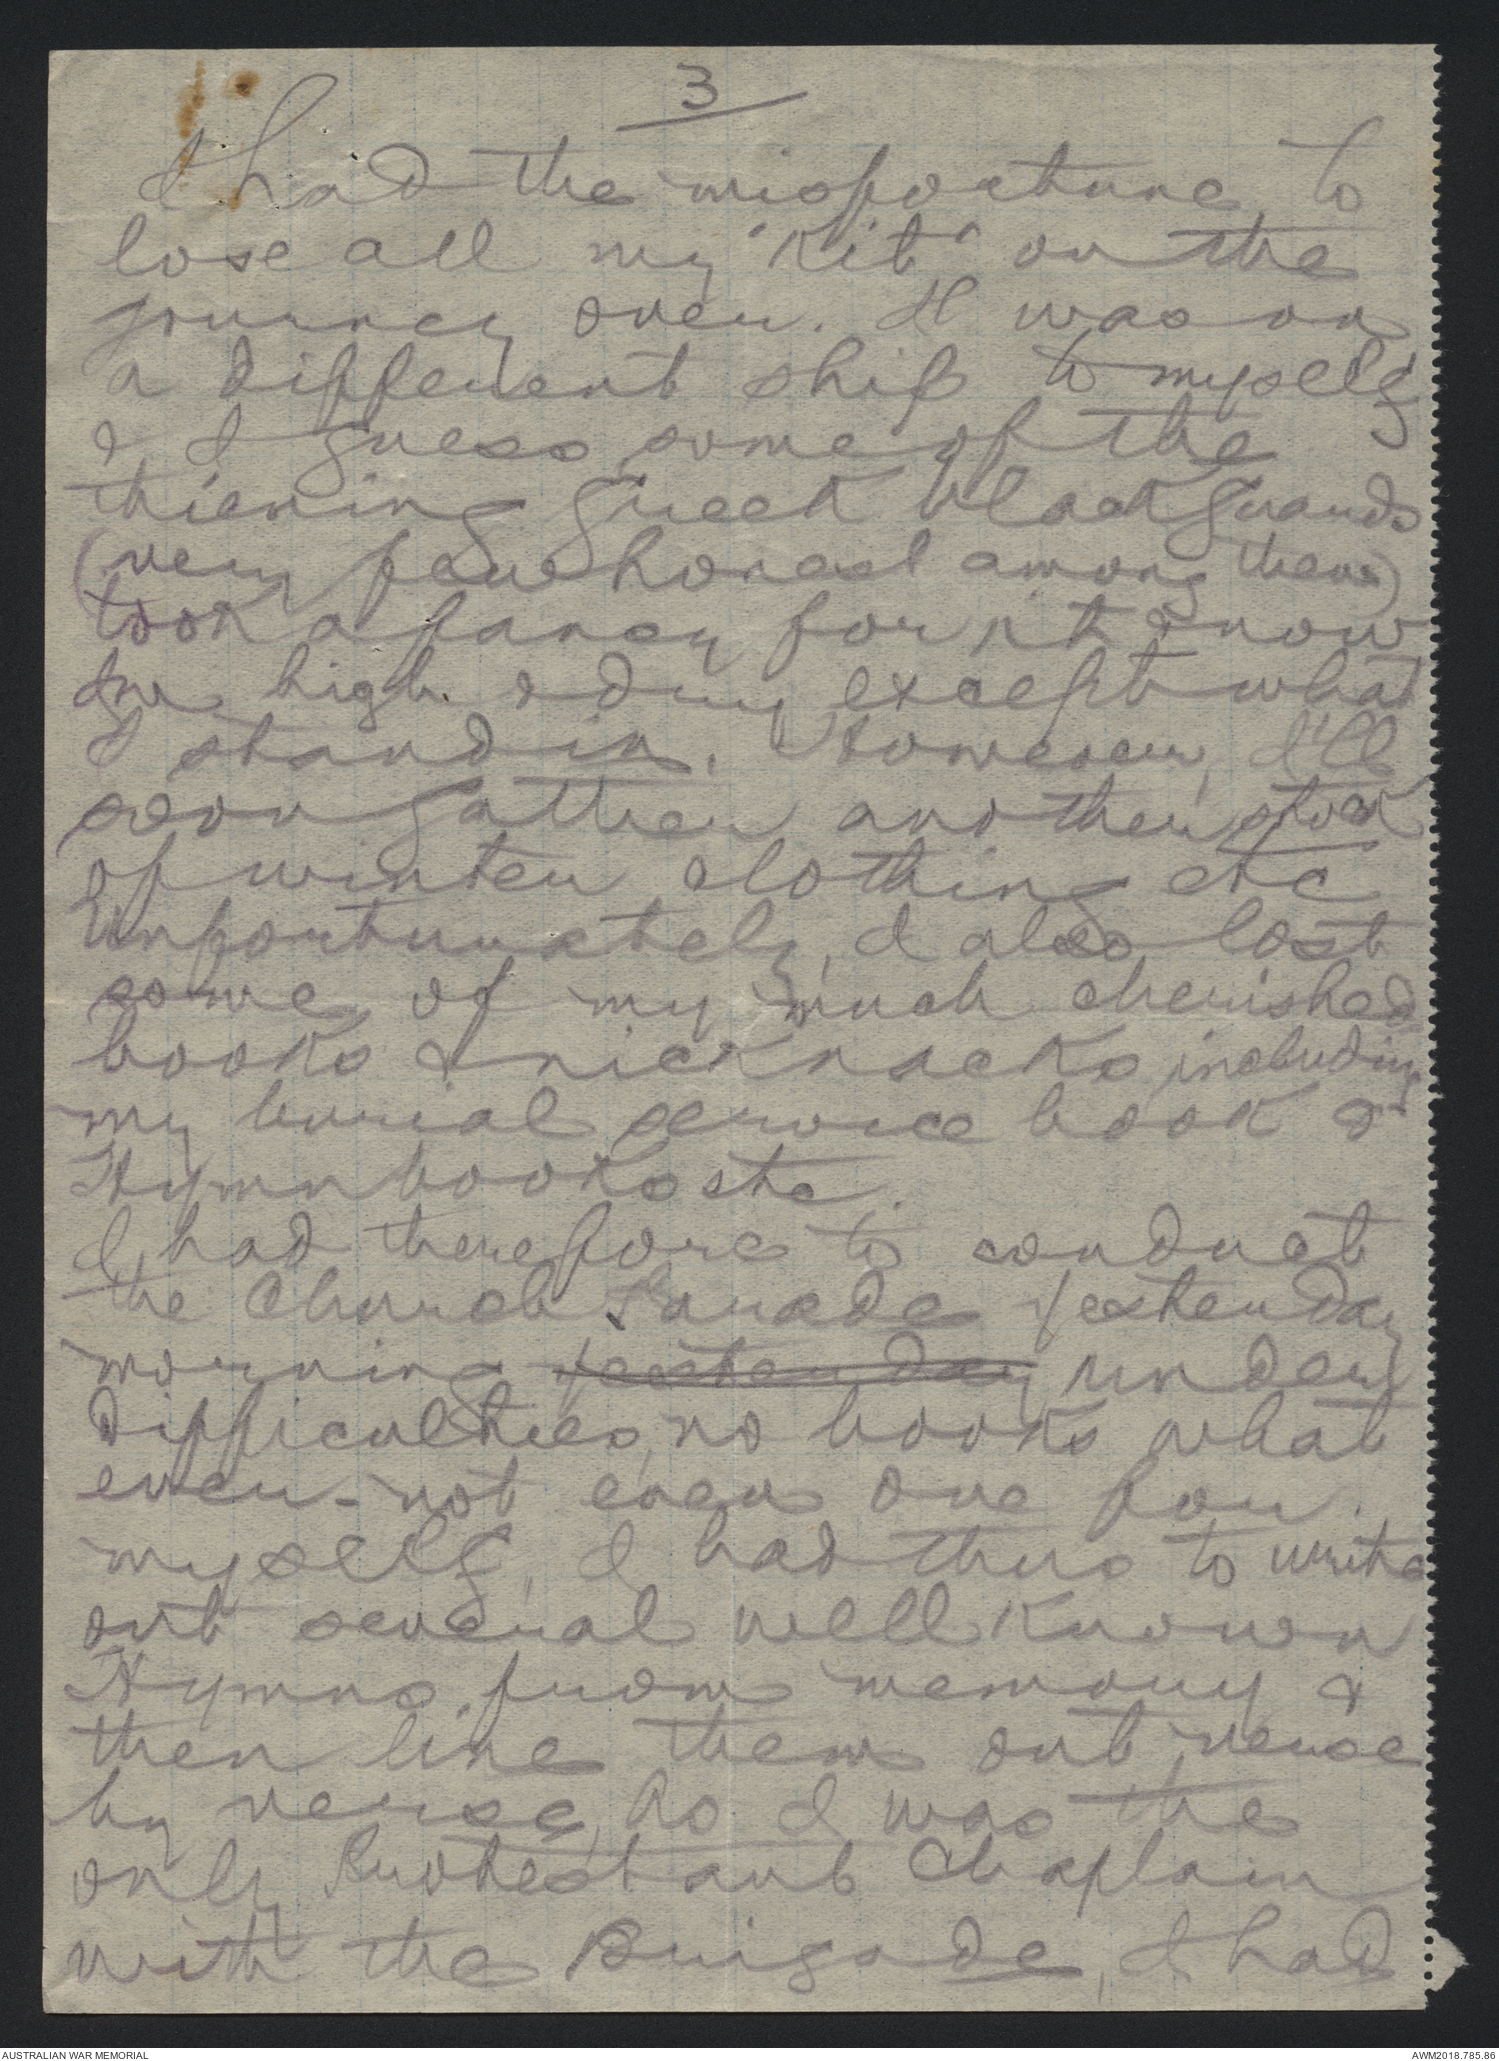 3
I had the misfortune, to
lose all my "Kit" on the
journey over. It was on
a different ship to myself
& I guess some of the
thieving Greek blackguards
(very few honest among them)
took a fancy for it & now
Im high & dry except what
I stand in. However, I'll
soon gather another stock
of winter clothing etc
Unfortunately, I also lost
some of my much cherished
books & nicknacks, including
my burial service book &
Hymn books etc.
I had therefore to conduct
the Church Parade Yesterday
morning Yesterday under
difficulties, no books what
ever - not even one for
myself, I had thus to write
out several well known
Hymns from memory &
then line them out verse
by verse, As I was the
only Protestant Chaplain
with the Brigade, I had
AUSTRALIAN WAR MEMORIAL
AWM2018.785.86